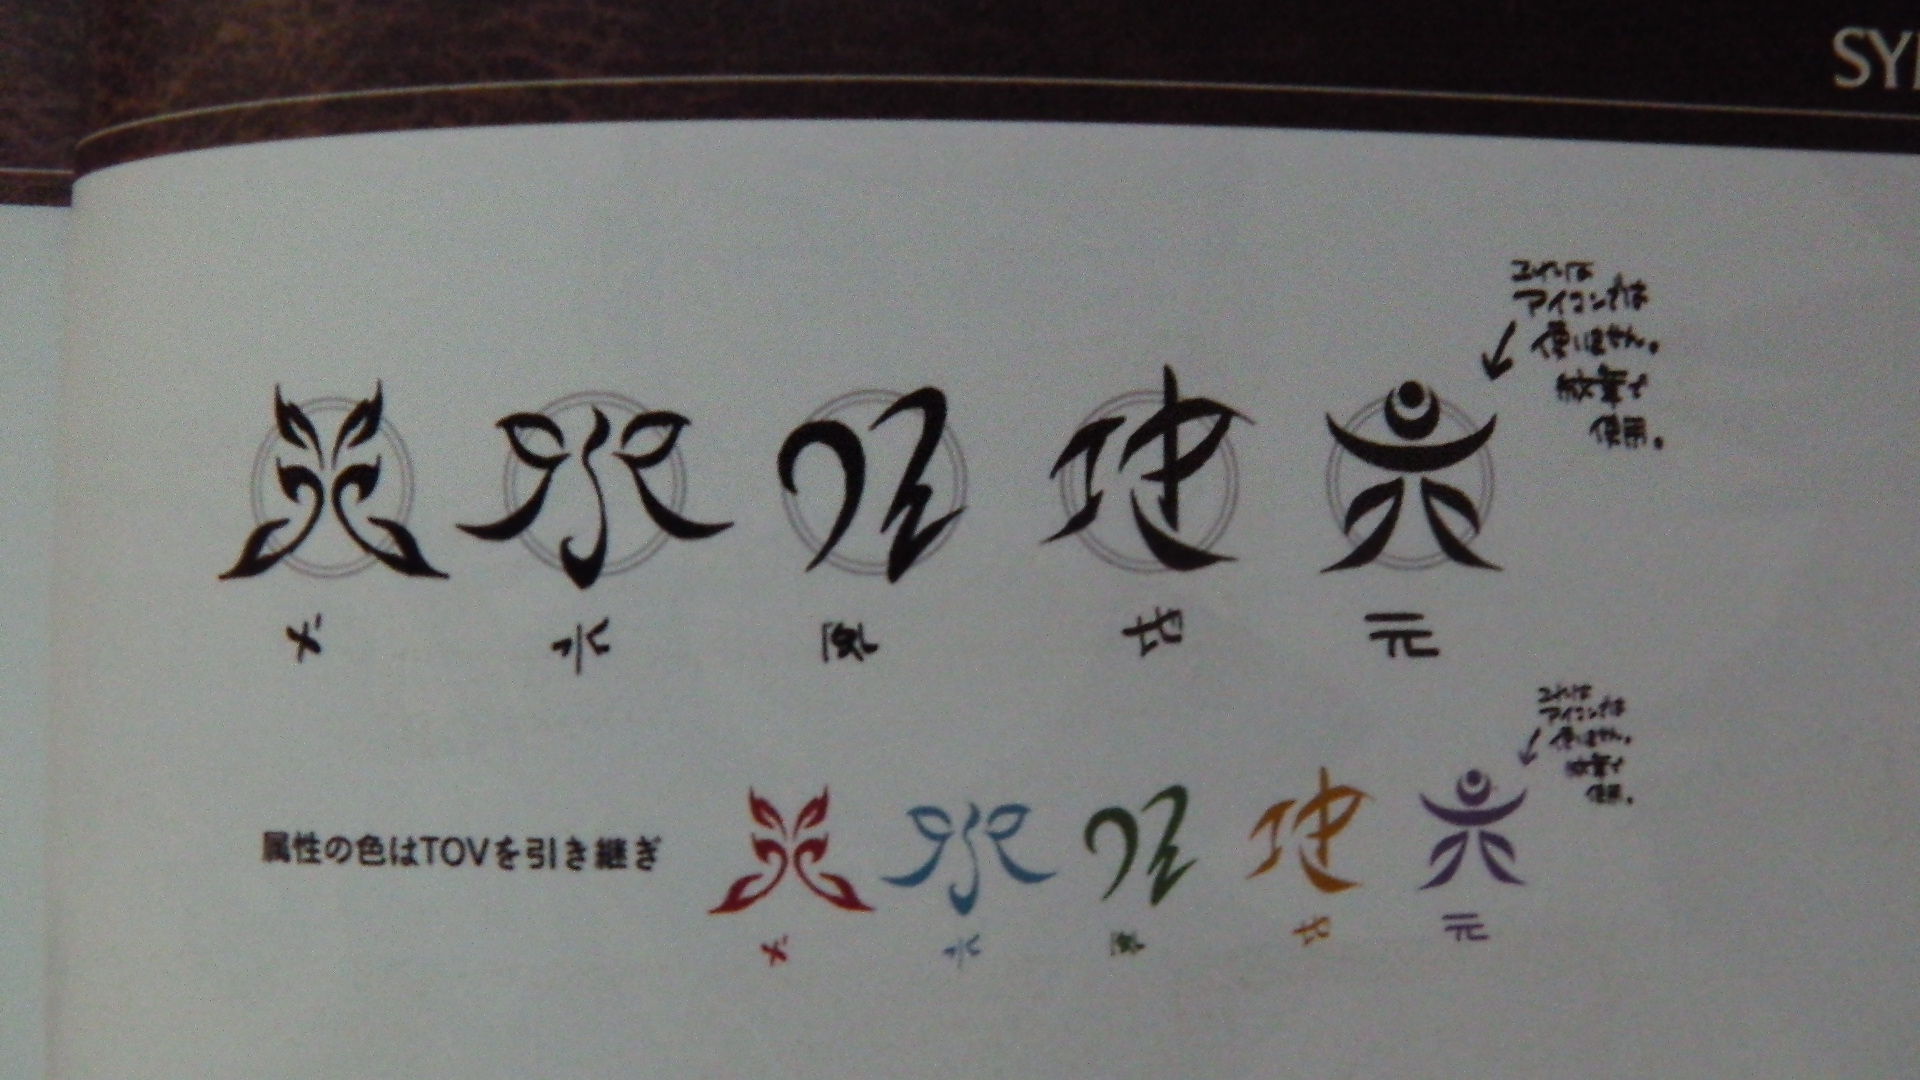 SY
これは
アイコンでは
使いません。
使用。
火
水
風
地
元
これは
アイコンでは
使いません。
使用。
属性の色はTOVを引き継ぎ
火
水
風
地
元